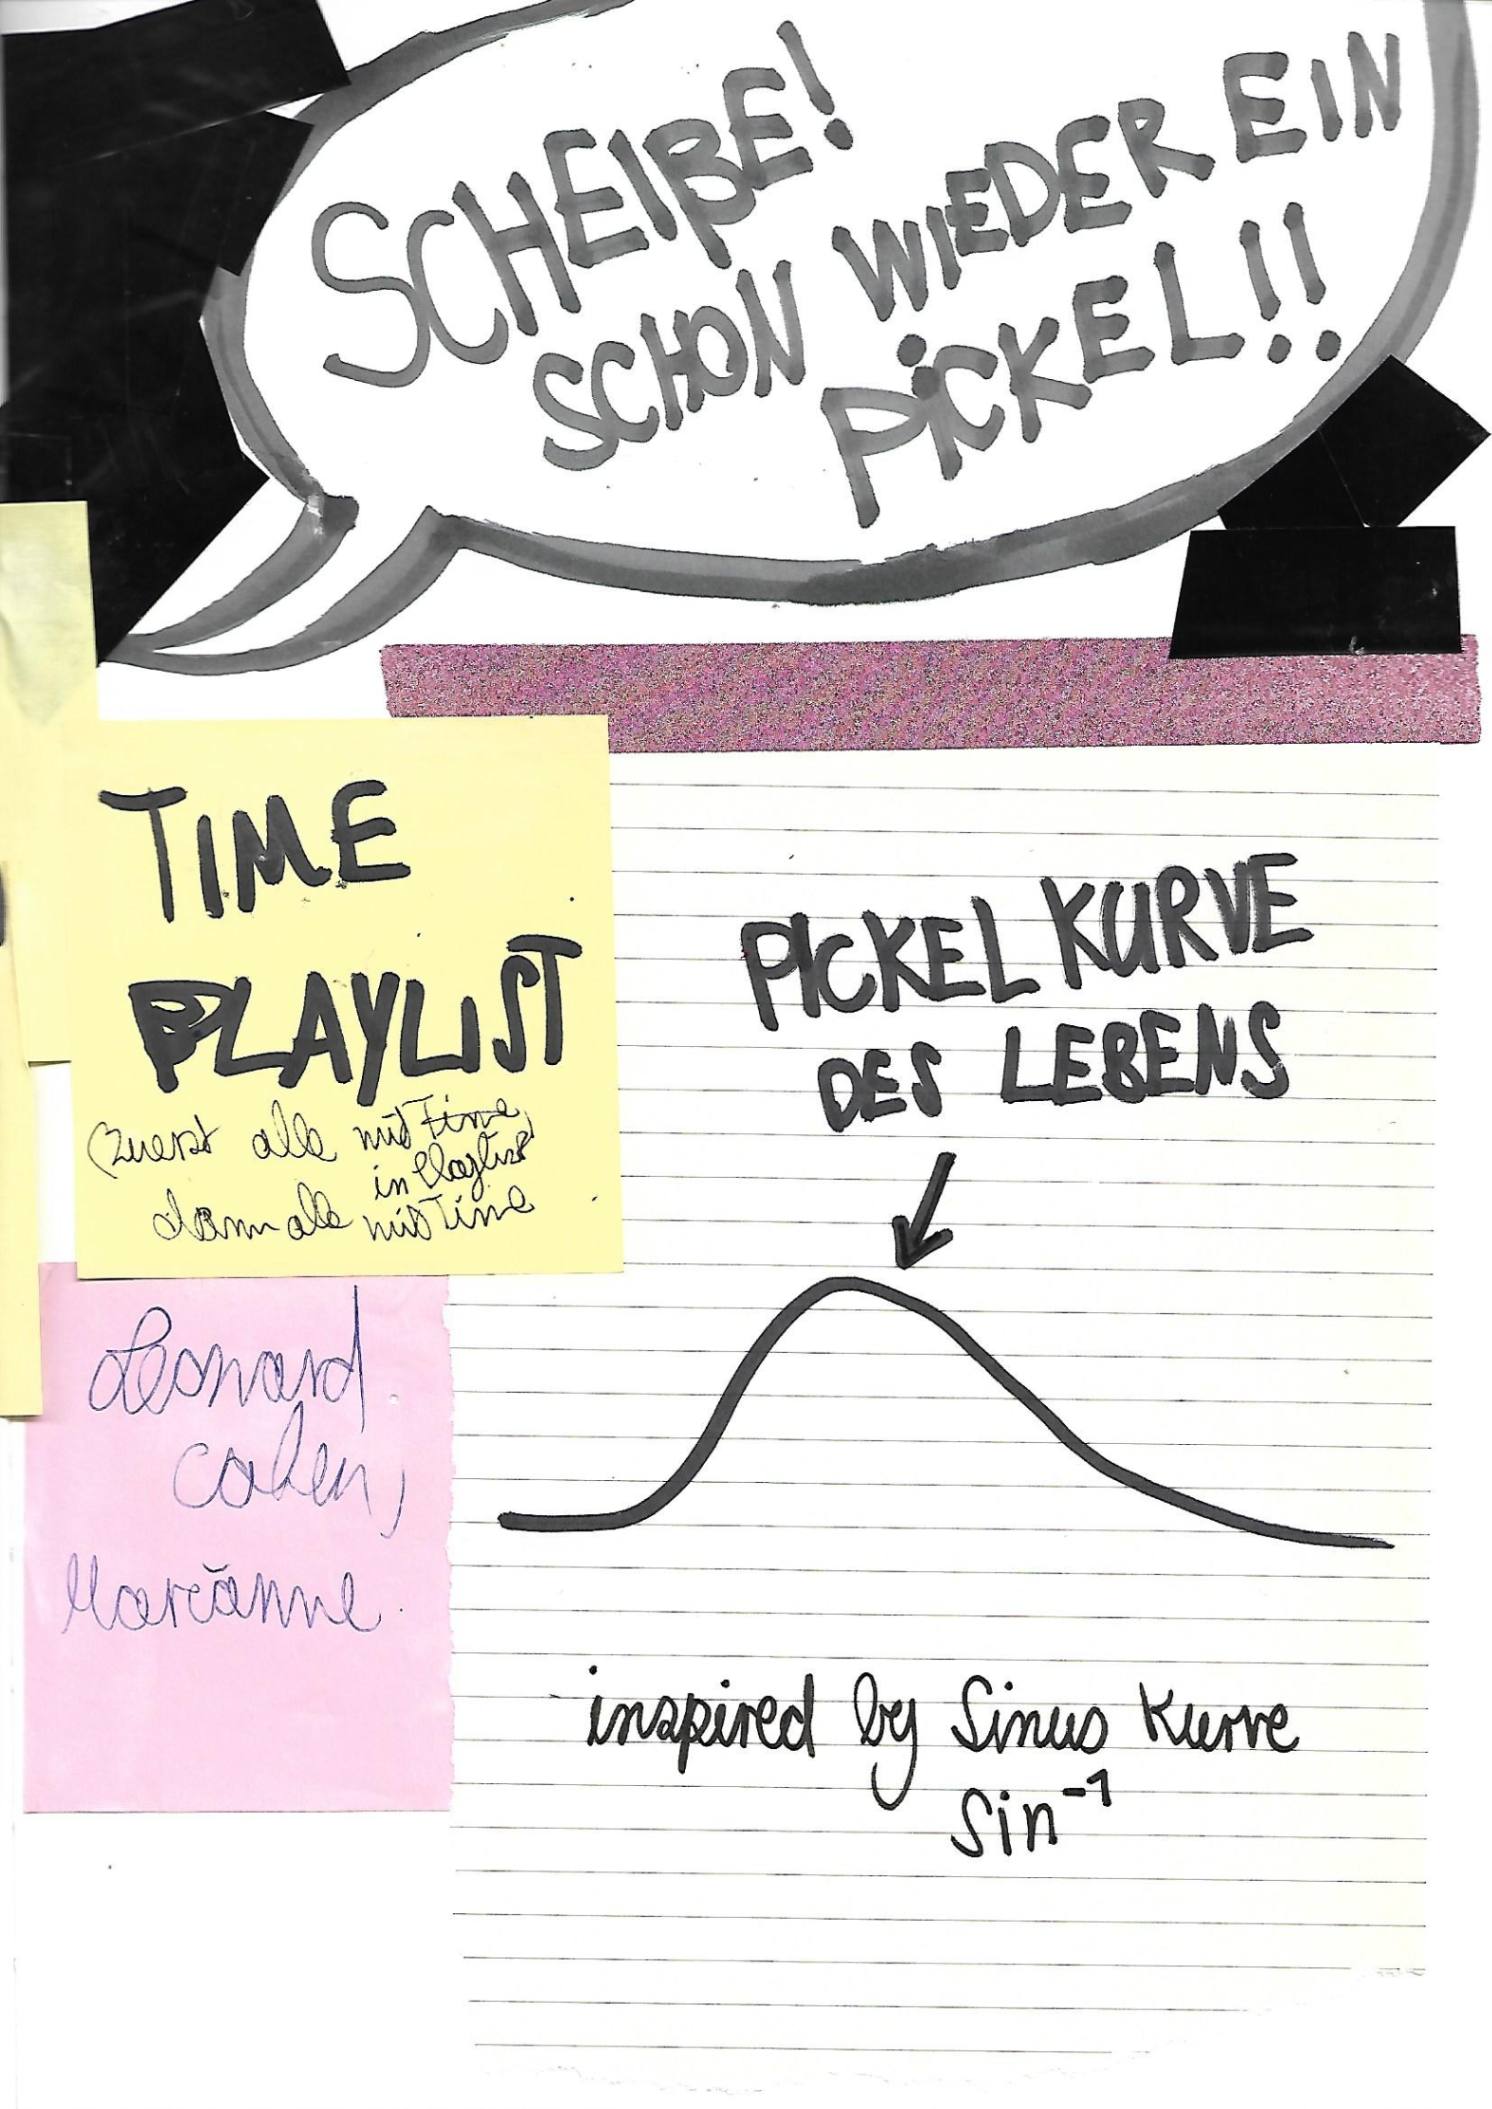 SCHEIßE!
SCHON WIEDER EIN
PICKEL!!
TIME
PLAYLIST
(zuerst alle mit Time
in Playlist
dann alle mit Time
PICKEL KURVE
DES LEBENS
Leonard
Cohen,
Marianne
inspired by Sinus Kurve
Sin⁻¹